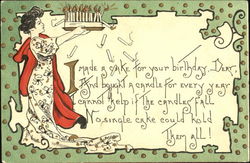 I made a cake for your birthday, Dear,
And bought a candle for every year
I cannot help if the candles fall
No single cake could hold
Them all!